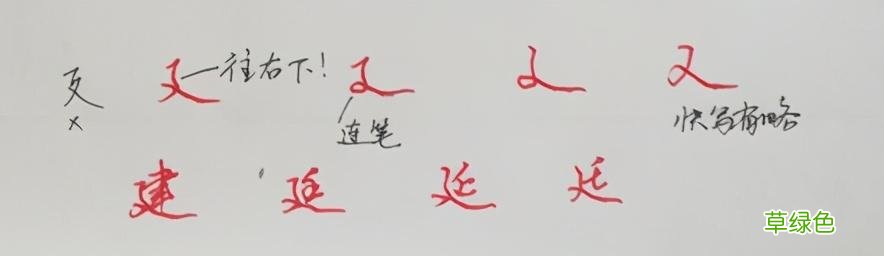 廴 廴 往右下! 廴 廴 廴
× 连笔 快写有略
建 廷 延 廷
草绿色